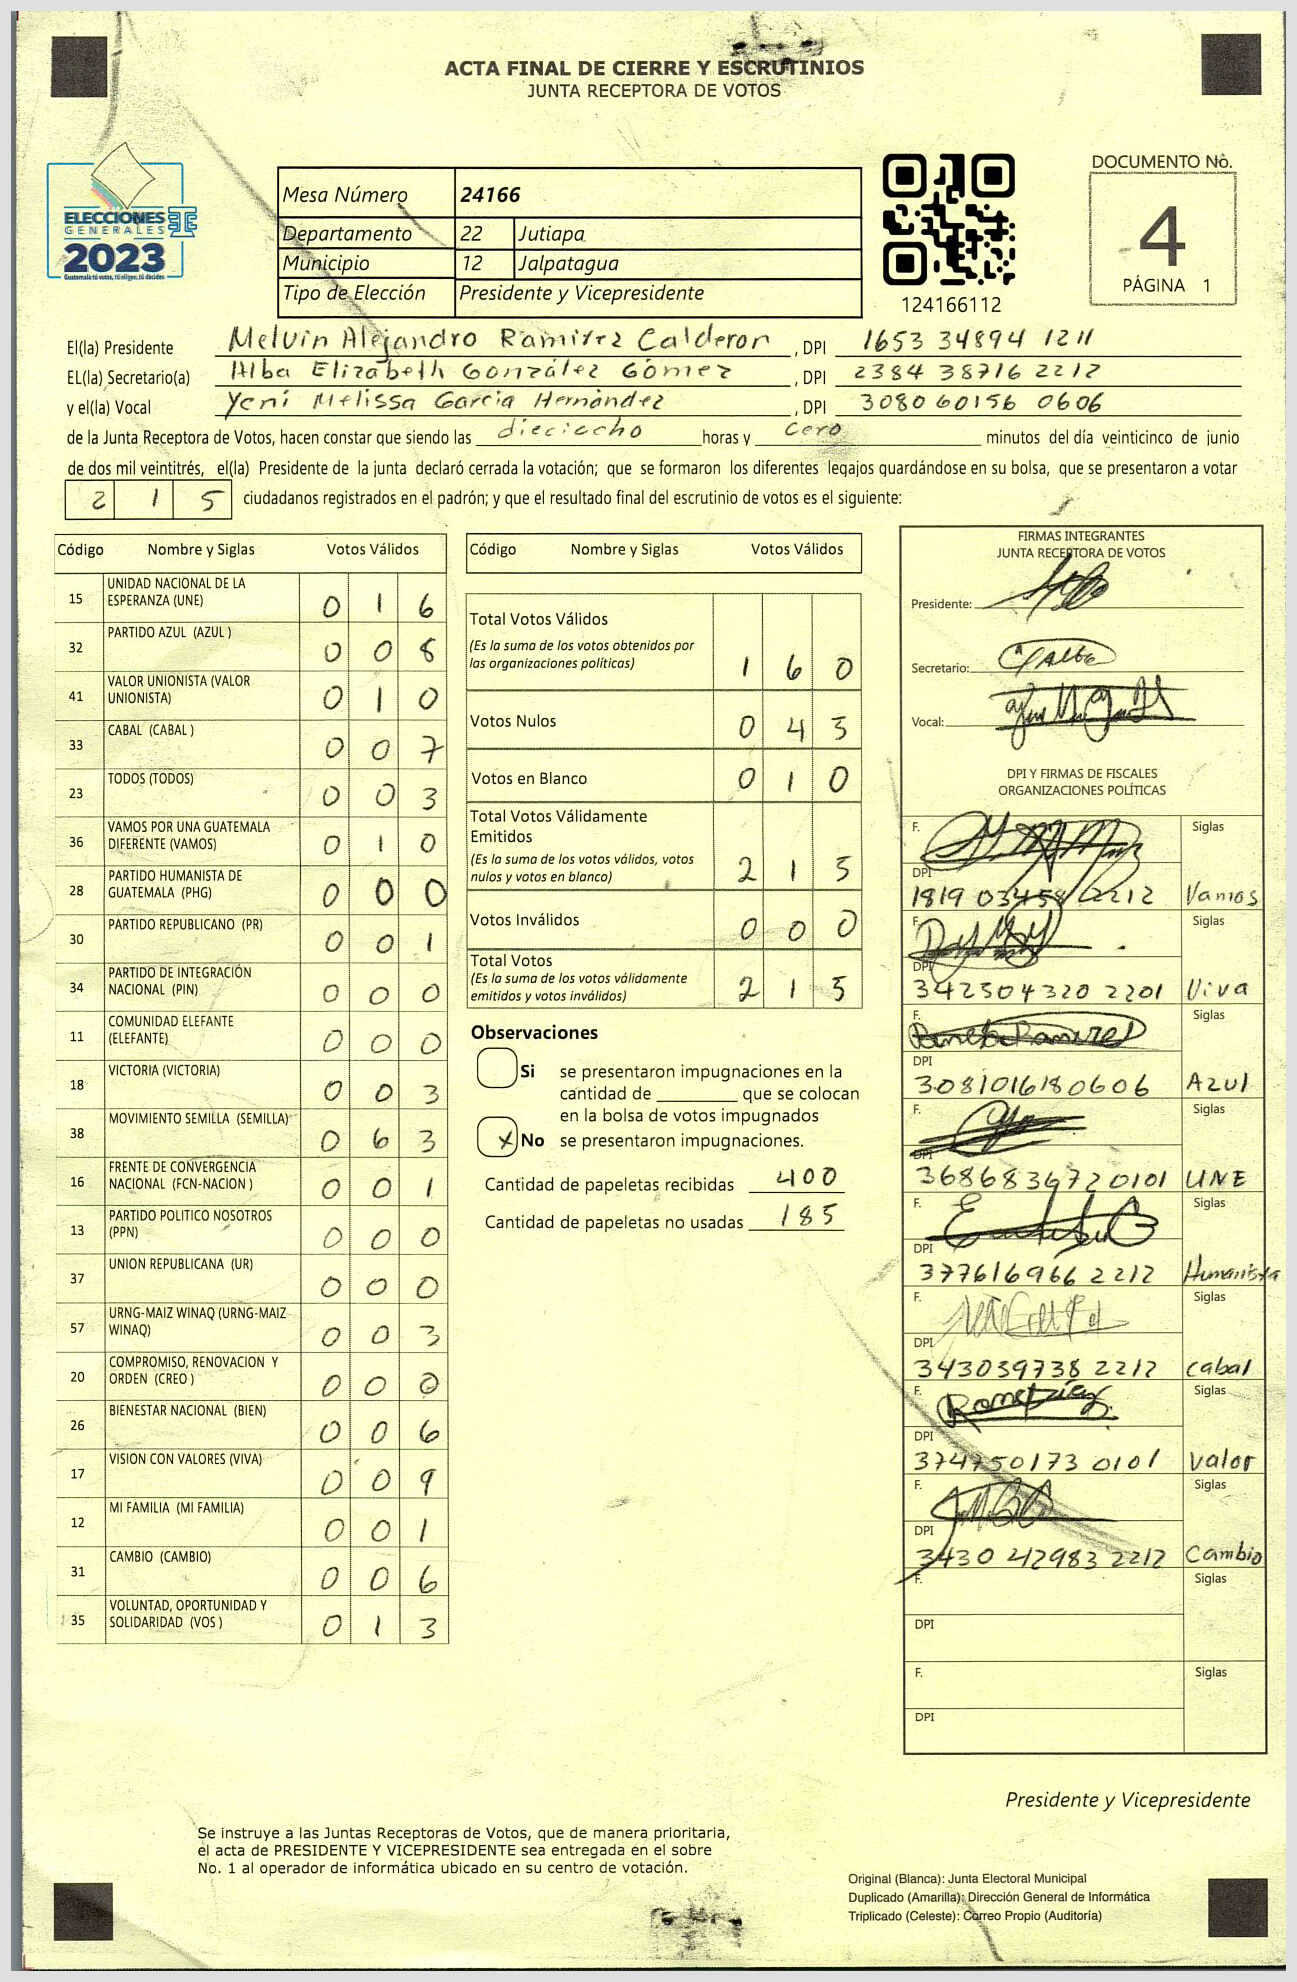 ACTA FINAL DE CIERRE Y ESCRUTINIOS
JUNTA RECEPTORA DE VOTOS
ELECCIONES
GENERALES
2023
Guatemala: tú votas, tú eliges, tú decides
Mesa Número 24166
Departamento 22 Jutiapa
Municipio 12 Jalpatagua
Tipo de Elección Presidente y Vicepresidente
124166112
DOCUMENTO No.
4
PÁGINA 1
El(la) Presidente Melvin Alejandro Ramirez Calderon , DPI 1653 34894 1211
EL(la) Secretario(a) Alba Elizabeth González Gómez , DPI 2384 38716 2212
y el(la) Vocal Yeni Melissa Garcia Hernández , DPI 3080 60156 0606
de la Junta Receptora de Votos, hacen constar que siendo las dieciocho horas y cero minutos del día veinticinco de junio
de dos mil veintitrés, el(la) Presidente de la junta declaró cerrada la votación; que se formaron los diferentes legajos guardándose en su bolsa, que se presentaron a votar
2 1 5 ciudadanos registrados en el padrón; y que el resultado final del escrutinio de votos es el siguiente:
Código Nombre y Siglas Votos Válidos
15 UNIDAD NACIONAL DE LA
ESPERANZA (UNE) 0 1 6
32 PARTIDO AZUL (AZUL ) 0 0 8
41 VALOR UNIONISTA (VALOR
UNIONISTA) 0 1 0
33 CABAL (CABAL ) 0 0 7
23 TODOS (TODOS) 0 0 3
36 VAMOS POR UNA GUATEMALA
DIFERENTE (VAMOS) 0 1 0
28 PARTIDO HUMANISTA DE
GUATEMALA (PHG) 0 0 0
30 PARTIDO REPUBLICANO (PR) 0 0 1
34 PARTIDO DE INTEGRACIÓN
NACIONAL (PIN) 0 0 0
11 COMUNIDAD ELEFANTE
(ELEFANTE) 0 0 0
18 VICTORIA (VICTORIA) 0 0 3
38 MOVIMIENTO SEMILLA (SEMILLA) 0 6 3
16 FRENTE DE CONVERGENCIA
NACIONAL (FCN-NACION ) 0 0 1
13 PARTIDO POLITICO NOSOTROS
(PPN) 0 0 0
37 UNION REPUBLICANA (UR) 0 0 0
57 URNG-MAIZ WINAQ (URNG-MAIZ
WINAQ) 0 0 3
20 COMPROMISO, RENOVACION Y
ORDEN (CREO ) 0 0 0
26 BIENESTAR NACIONAL (BIEN) 0 0 6
17 VISION CON VALORES (VIVA) 0 0 9
12 MI FAMILIA (MI FAMILIA) 0 0 1
31 CAMBIO (CAMBIO) 0 0 6
35 VOLUNTAD, OPORTUNIDAD Y
SOLIDARIDAD (VOS ) 0 1 3
Código Nombre y Siglas Votos Válidos
Total Votos Válidos
(Es la suma de los votos obtenidos por
las organizaciones políticas) 1 6 0
Votos Nulos 0 4 5
Votos en Blanco 0 1 0
Total Votos Válidamente
Emitidos
(Es la suma de los votos válidos, votos
nulos y votos en blanco) 2 1 5
Votos Inválidos 0 0 0
Total Votos
(Es la suma de los votos válidamente
emitidos y votos inválidos) 2 1 5
Observaciones
Si se presentaron impugnaciones en la
cantidad de ________ que se colocan
en la bolsa de votos impugnados
x No se presentaron impugnaciones.
Cantidad de papeletas recibidas 400
Cantidad de papeletas no usadas 185
FIRMAS INTEGRANTES
JUNTA RECEPTORA DE VOTOS
Presidente:
Secretario:
Vocal:
DPI Y FIRMAS DE FISCALES
ORGANIZACIONES POLÍTICAS
F. Siglas
DPI
1819 03458 2212 Vamos
F. Siglas
DPI
342504320 2201 Viva
F. Siglas
DPI
3081016180606 Azul
F. Siglas
DPI
3686836720101 UNE
F. Siglas
DPI
377616966 2212 Humanista
F. Siglas
DPI
343039738 2212 cabal
F. Siglas
DPI
374750173 0101 Valor
F. Siglas
DPI
3430 42983 2212 Cambio
F. Siglas
DPI
F. Siglas
DPI
Presidente y Vicepresidente
Se instruye a las Juntas Receptoras de Votos, que de manera prioritaria,
el acta de PRESIDENTE Y VICEPRESIDENTE sea entregada en el sobre
No. 1 al operador de informática ubicado en su centro de votación.
Original (Blanca): Junta Electoral Municipal
Duplicado (Amarilla): Dirección General de Informática
Triplicado (Celeste): Correo Propio (Auditoría)